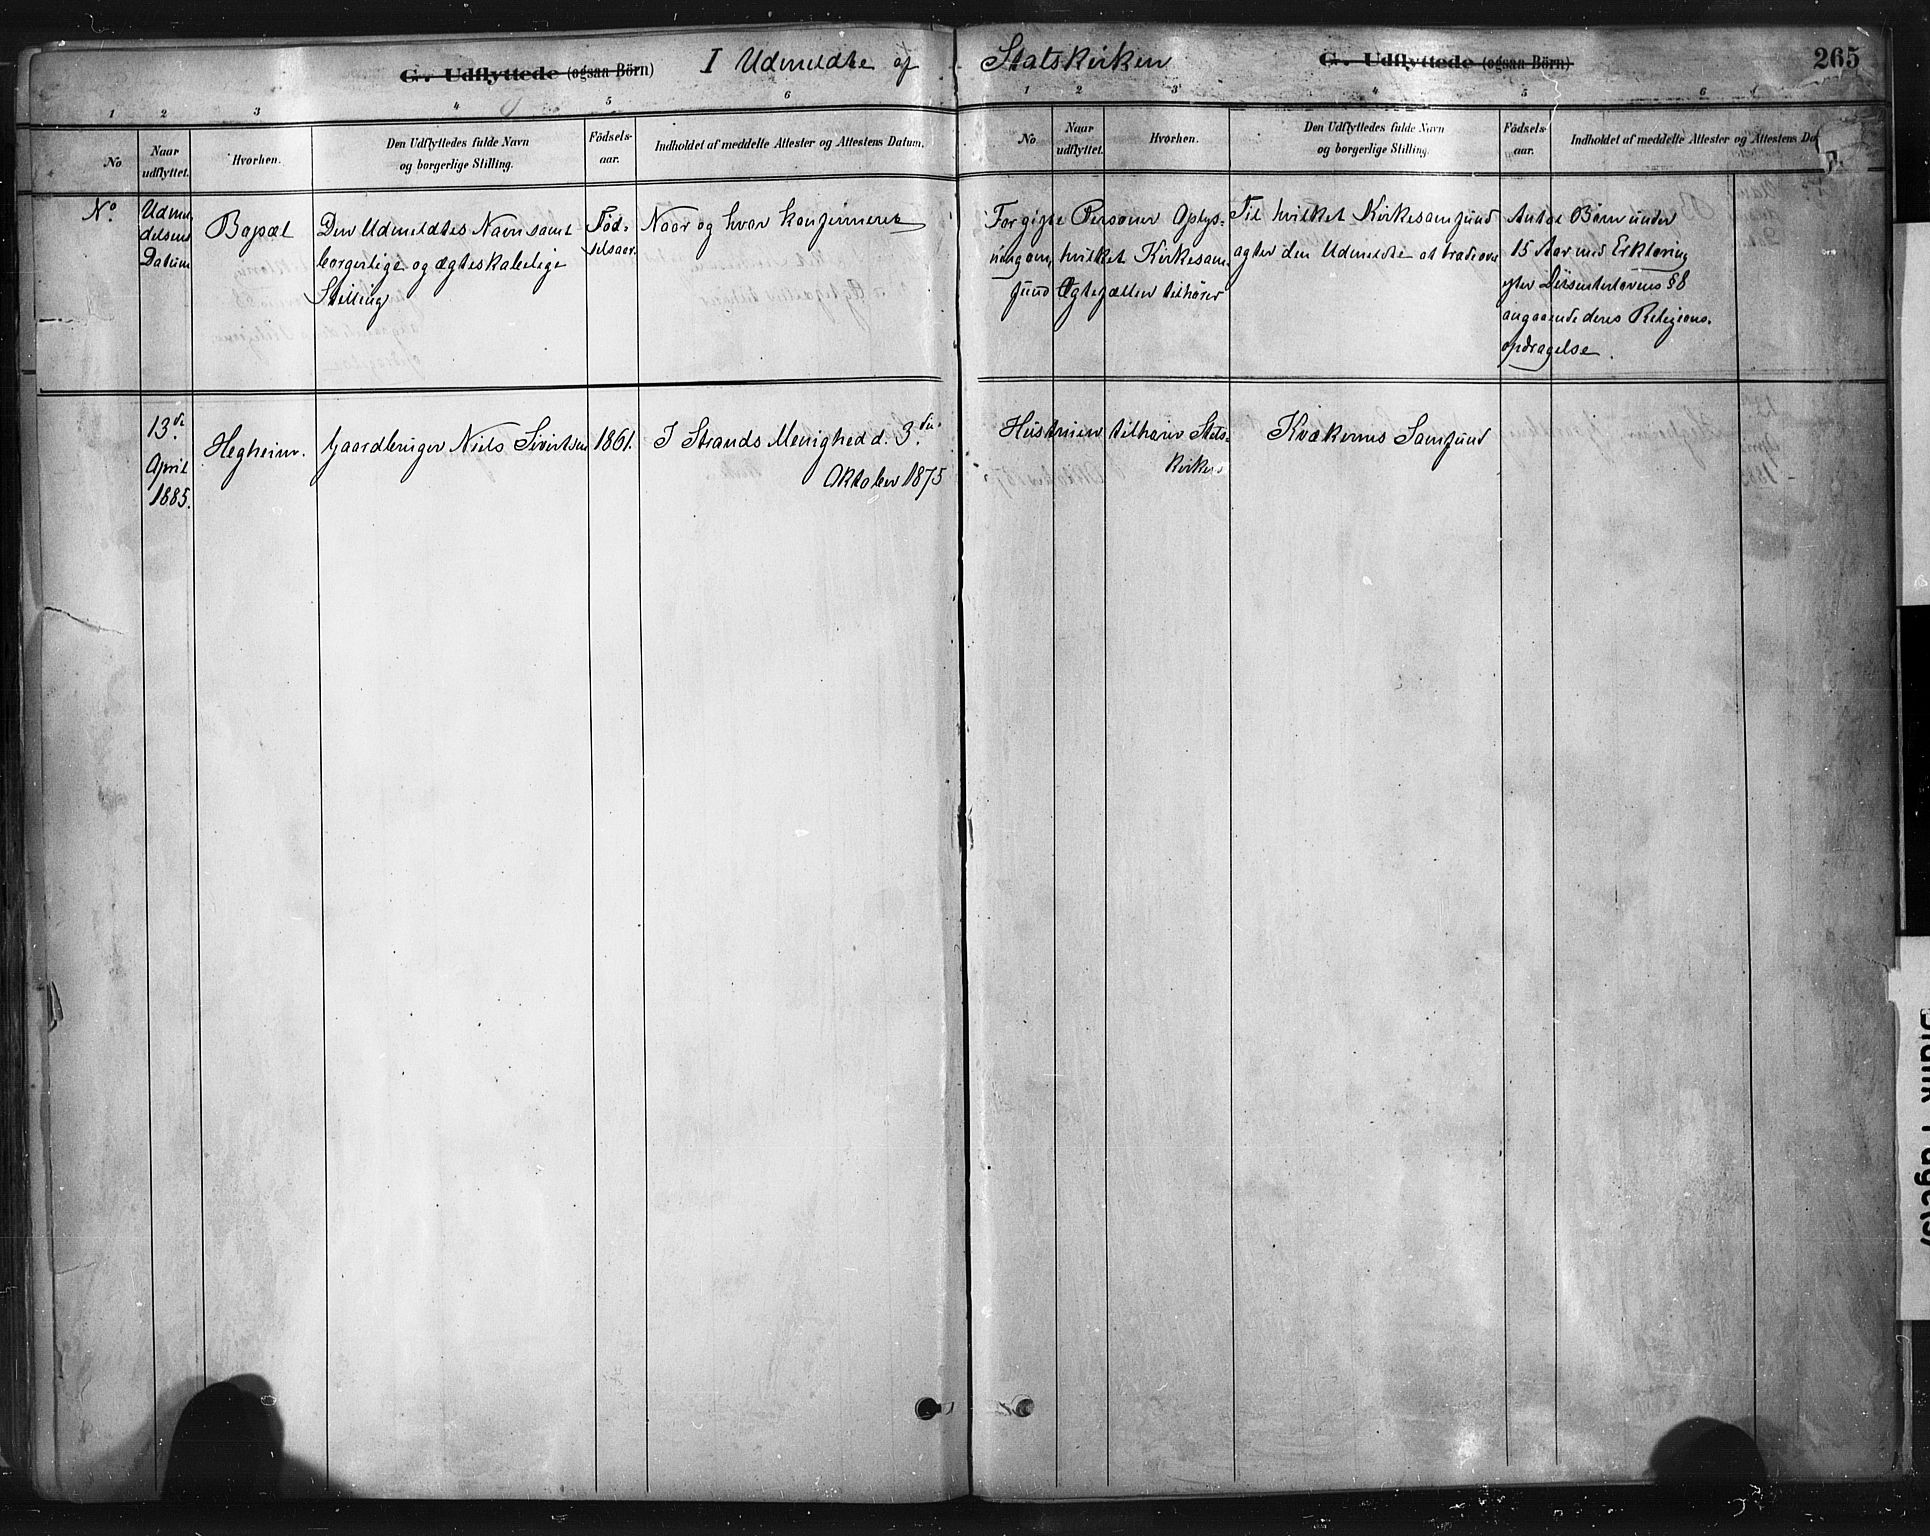 G. Udflyttede (ogsaa Börn) I Udmeldte af Statskirken G. Udflyttede (ogsaa Börn) 265
1 2 3 4 5 6 1 2 3 4 5 6
No
Naar
udflyttet.
Hvorhen.
Den Udflyttedes fulde Navn
og borgerlige Stilling.
Födsels-
aar.
Indholdet af meddelte Attester og Attestens Datum.
No
Naar
udflyttet.
Hvorhen.
Den Udflyttedes fulde Navn
og borgerlige Stilling.
Födsels-
aar.
Indholdet af meddelte Attester og Attestens Da
No.
Udmel
delsens
Datum
Bopæl
Den Udmeldtes Navn samt
borgerlige og ægteskabelige
Stilling
Fød-
selsaar.
Naar og hvor konfirmeret
For gifte Personer Oplys-
ning om, hvilket Kirkesam-
fund Ægtefællen tilhører
Til hvilket Kirkesamfund
agter den Udmeldte at træde over
Antal Børn under
15 Aar med Erklæring
efter Dissenterlovens §8
angaaende deres Religions-
opdragelse.
13de
April
1885.
Hegheim.
Gaardbruger Niels Sivertsen
1861.
I Strands Menighed d. 3die
Oktober 1875
Hustruen tilhører Stats-
kirken
Kvækernes Samfund